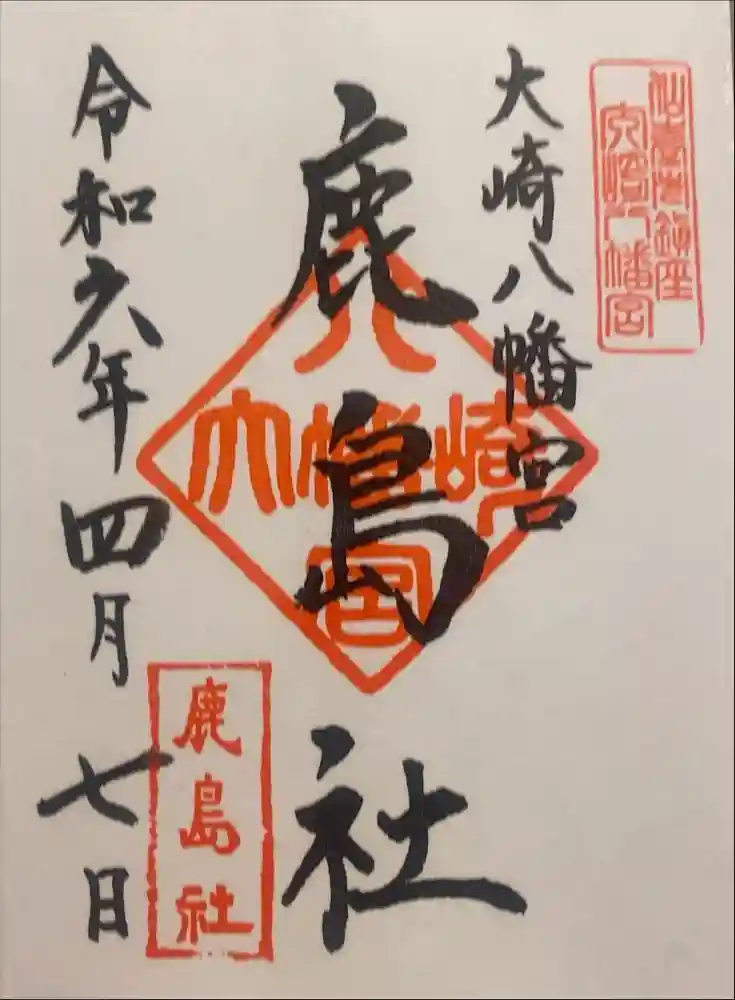 仙臺總鎮座
大崎八幡宮
大崎八幡宮
鹿島社
八
大幡崎
宮
鹿島社
令和六年四月七日